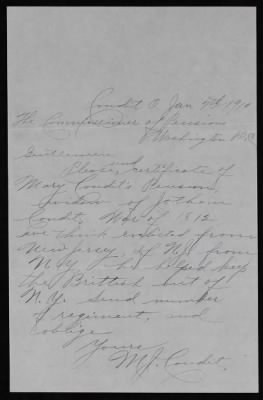 Condit O. Jan 7th, 1910
The Commissioner of Pensions
Washington D.C.
Gentlemen
Please, send certificate of
Mary Condit's Pension,
widow of Jotham
Condit, War of 1812
we think enlisted from
New Jersey, if not from
N. Y. he helped keep
the Brittish out of
N. Y. send number
of regiment, and
oblige
Yours
M. J. Condit.